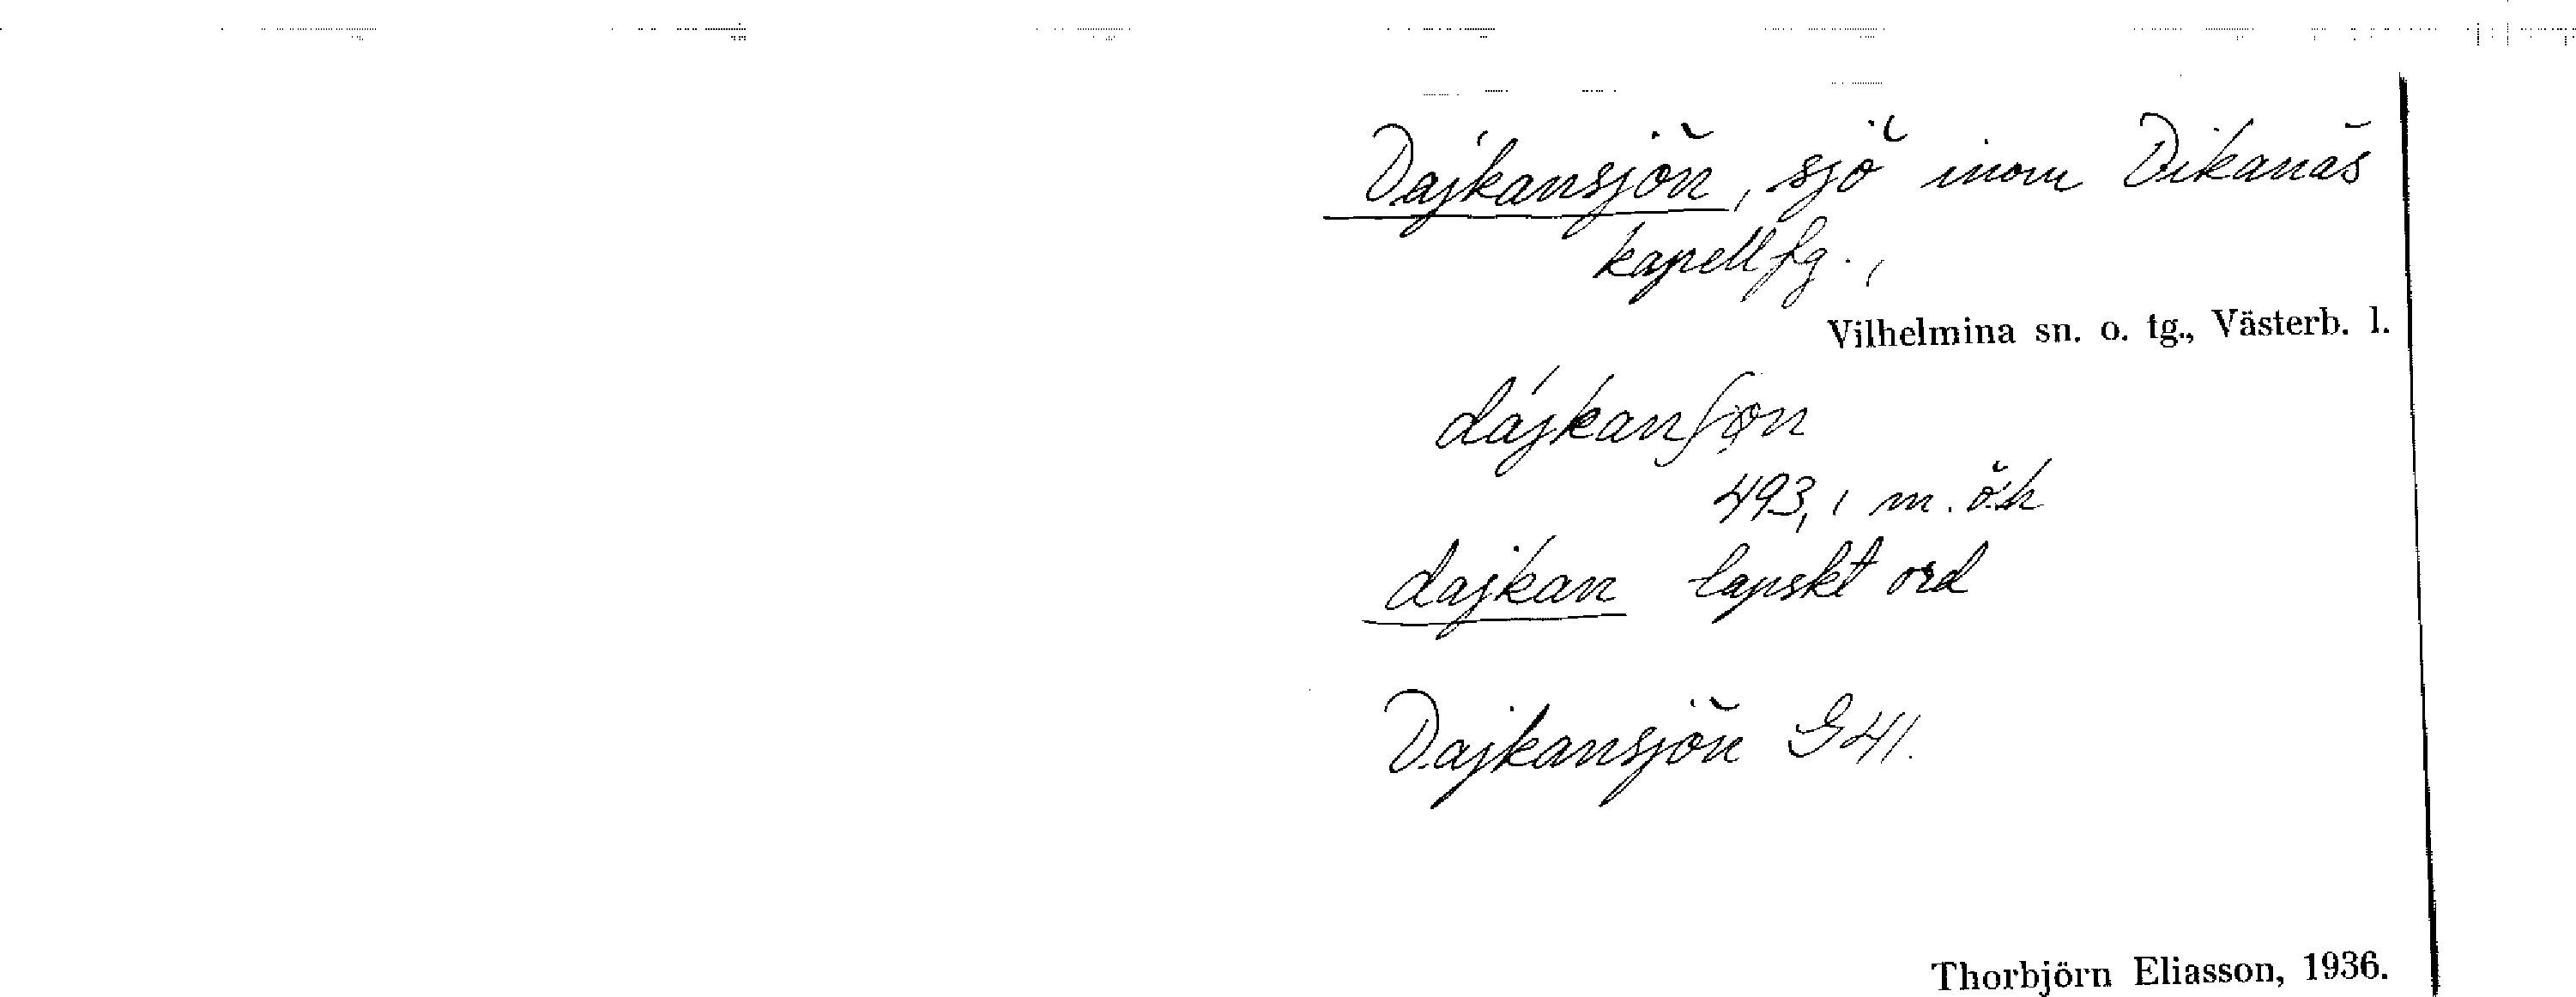 Dajkansjön, sjö inom Dikanäs
kapellfg.,
Vilhelmina sn. o. tg., Västerb. l.
dájkanʃøn
493,1 m.ö.h
dajkan lapskt ord
Dajkansjön G41.
Thorbjörn Eliasson, 1936.